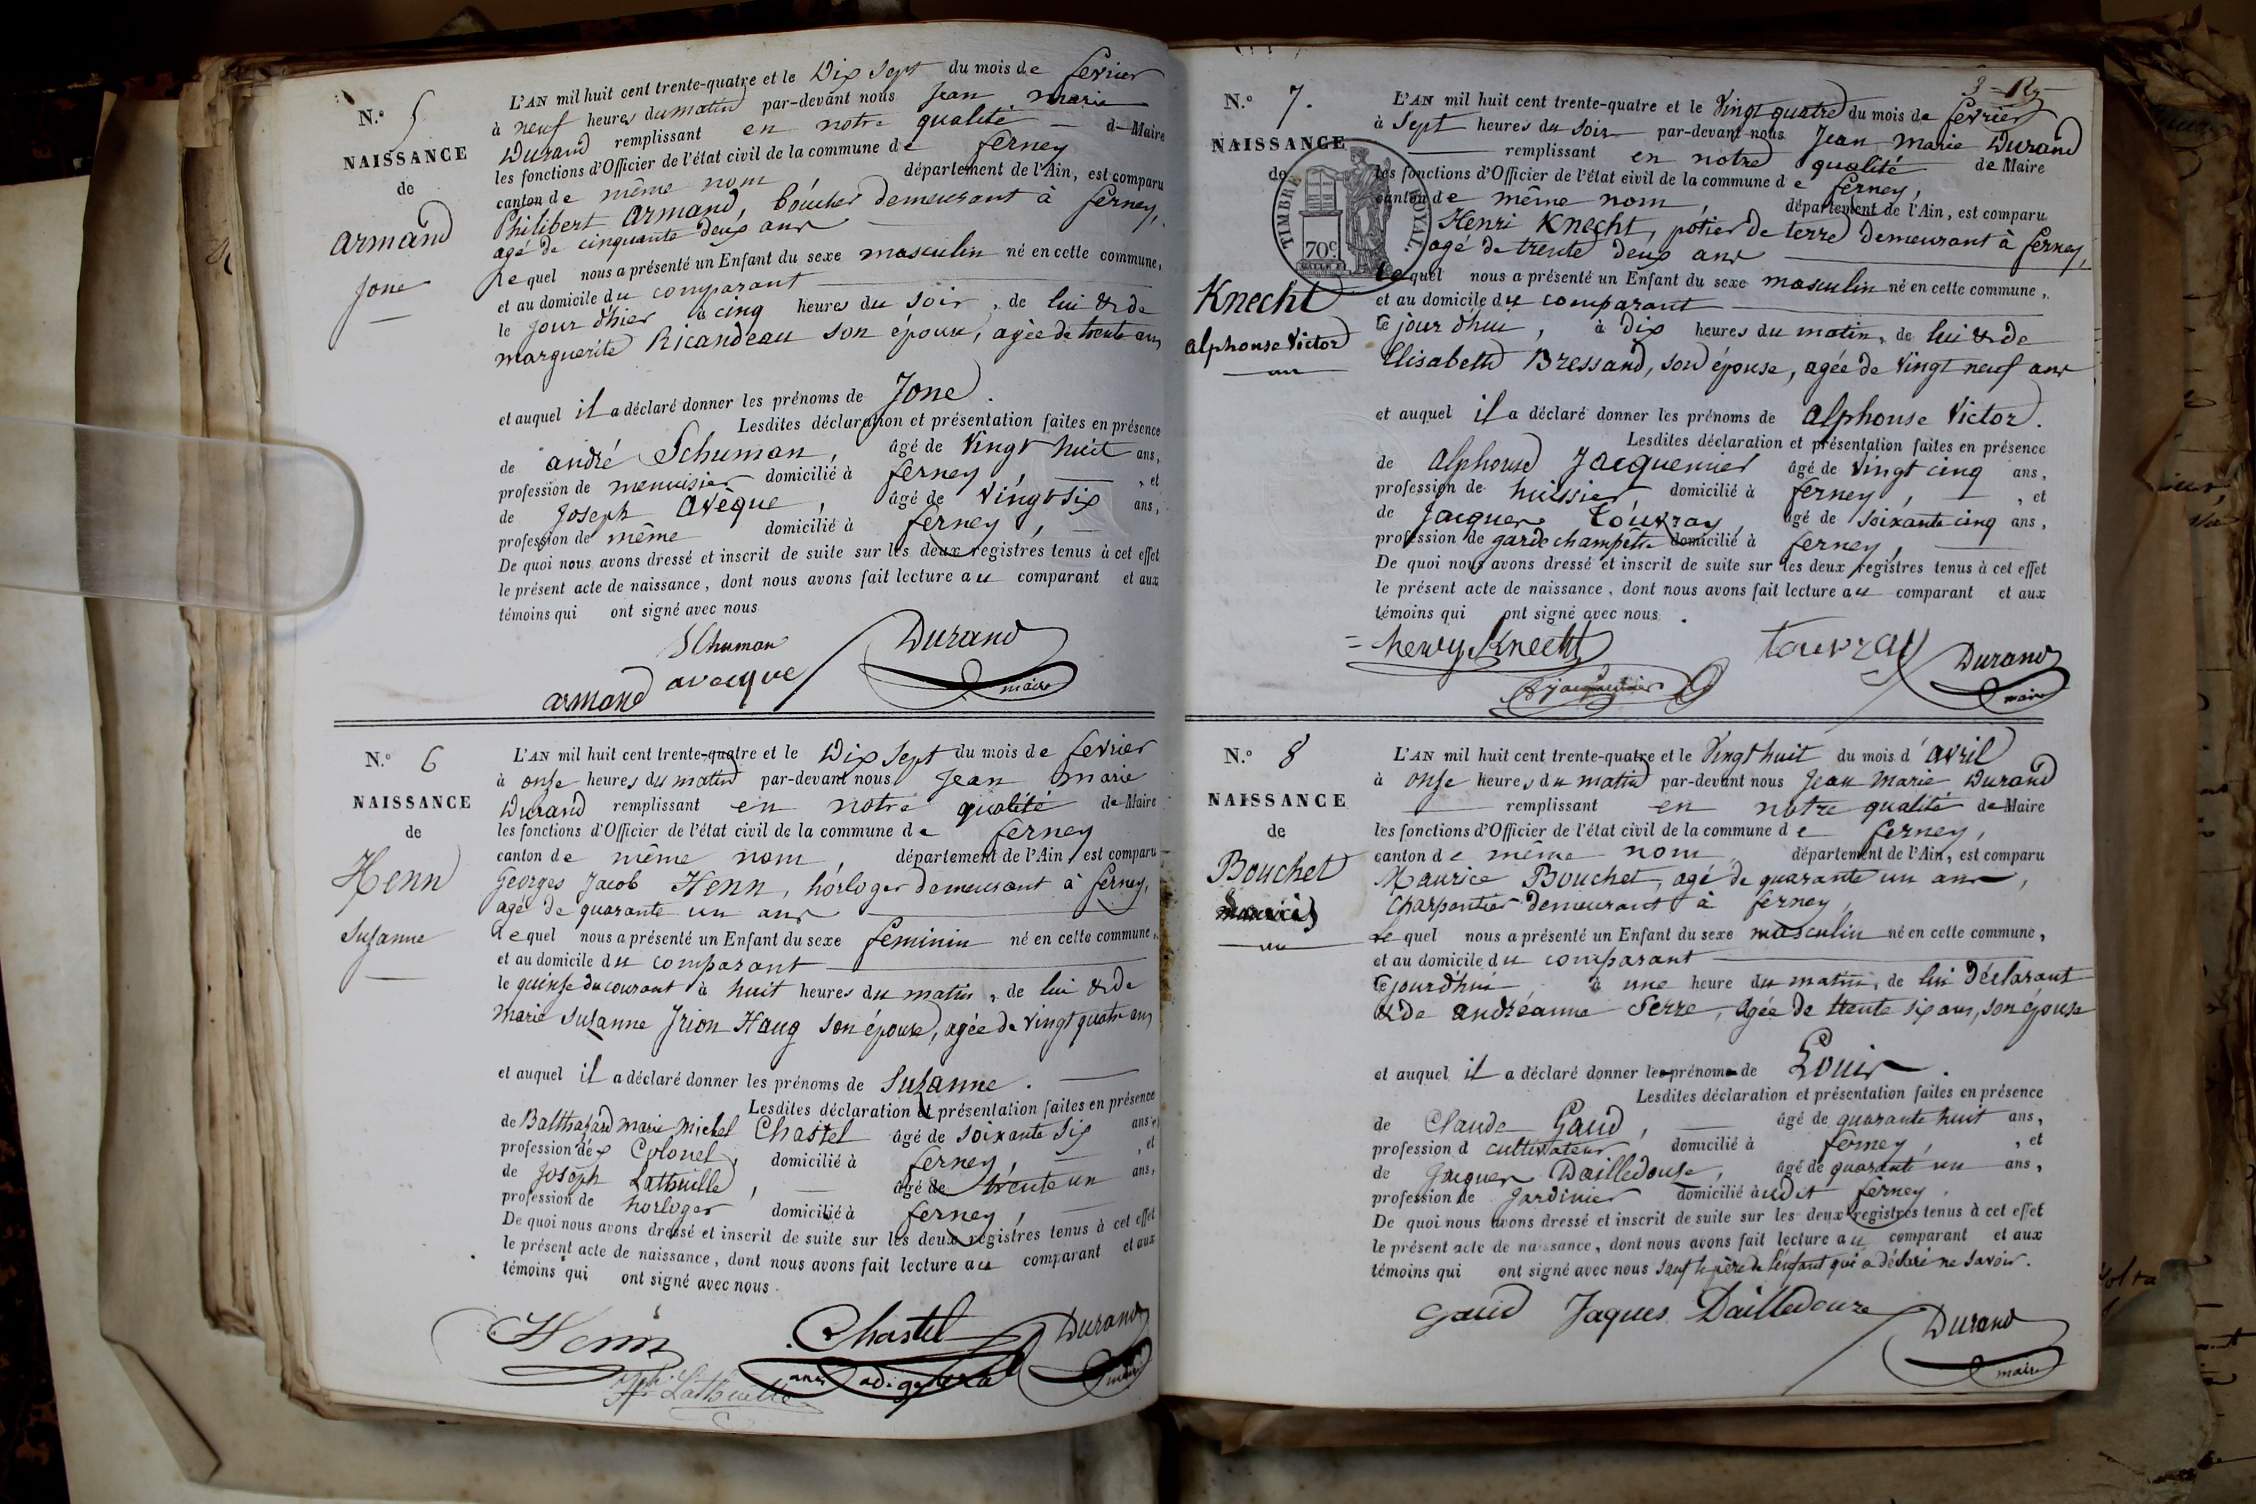 N.° 5
NAISSANCE
de
Armand
Jone
L'AN mil huit cent trente-quatre et le Dix Sept du mois de fevrier
à neuf heures du matin par-devant nous Jean Marie
Durand remplissant en notre qualité de Maire
les fonctions d'Officier de l'état civil de la commune de ferney
canton de même nom, département de l'Ain, est comparu
Philibert Armand, boucher demeurant à ferney,
agé de cinquante deux ans
Lequel nous a présenté un Enfant du sexe masculin né en cette commune,
et au domicile du comparant
le jour d'hier à cinq heures du soir, de lui & de
marguerite Ricandeau son épouse, agée de trente ans
et auquel il a déclaré donner les prénoms de Jone.
Lesdites déclaration et présentation faites en présence
de andré Schuman, âgé de Vingt huit ans,
profession de menuisier domicilié à ferney, et
de Joseph Aveque, âgé de Vingt six ans,
profession de même domicilié à ferney,
De quoi nous avons dressé et inscrit de suite sur les deux registres tenus à cet effet
le présent acte de naissance, dont nous avons fait lecture au comparant et aux
témoins qui ont signé avec nous
Schuman
Durand
armand avecque
maire
N.° 6
NAISSANCE
de
Henn
Suzanne
L'AN mil huit cent trente-quatre et le Dix Sept du mois de fevrier
à onse heures du matin par-devant nous Jean Marie
Durand remplissant en notre qualité de Maire
les fonctions d'Officier de l'état civil de la commune de ferney
canton de même nom, département de l'Ain, est comparu
Georges Jacob Henn, horloger demeurant à ferney,
agé de quarante un ans
Lequel nous a présenté un Enfant du sexe feminin né en cette commune,
et au domicile du comparant
le quinse du courant à huit heures du matin, de lui & de
Marie Suzanne Irion Haug son épouse, agée de vingt quatre ans
et auquel il a déclaré donner les prénoms de Suzanne.
Lesdites déclaration et présentation faites en présence
de Balthazard Marie Michel Chastel âgé de soixante six ans,
profession d'ex Colonel, domicilié à ferney, et
de Joseph Lathuille, âgé de trente un ans,
profession de horloger domicilié à ferney,
De quoi nous avons dressé et inscrit de suite sur les deux registres tenus à cet effet
le présent acte de naissance, dont nous avons fait lecture au comparant et aux
témoins qui ont signé avec nous.
Henn Chastel Durand
maire
Lathuille
3
N.° 7.
NAISSANCE
de
Knecht
alphonse Victor
TIMBRE ROYAL.
70c
L'AN mil huit cent trente-quatre et le Vingt quatre du mois de fevrier
à Sept heures du soir par-devant nous Jean Marie Durand
remplissant en notre qualité de Maire
les fonctions d'Officier de l'état civil de la commune de ferney,
canton de même nom, département de l'Ain, est comparu
Henri Knecht, potier de terre demeurant à ferney,
agé de trente deux ans
Lequel nous a présenté un Enfant du sexe masculin né en cette commune,
et au domicile du comparant
Ce jour d'hui, à dix heures du matin, de lui & de
Elisabeth Bressand, son épouse, agée de Vingt neuf ans
et auquel il a déclaré donner les prénoms de alphonse Victor.
Lesdites déclaration et présentation faites en présence
de alphonse Jacquemier âgé de Vingt cinq ans,
profession de huissier domicilié à ferney, et
de Jacques Touvray, âgé de soixante cinq ans,
profession de garde champêtre domicilié à ferney,
De quoi nous avons dressé et inscrit de suite sur les deux registres tenus à cet effet
le présent acte de naissance, dont nous avons fait lecture au comparant et aux
témoins qui ont signé avec nous.
henry Knecht touvray Durand
maire
N.° 8
NAISSANCE
de
Bouchet
L'AN mil huit cent trente-quatre et le Vingt huit du mois d'avril
à onse heures du matin par-devant nous Jean Marie Durand
remplissant en notre qualité de Maire
les fonctions d'Officier de l'état civil de la commune de ferney,
canton de même nom département de l'Ain, est comparu
Maurice Bouchet, agé de quarante un ans,
Charpentier demeurant à ferney,
Lequel nous a présenté un Enfant du sexe masculin né en cette commune,
et au domicile du comparant
Cejourd'hui, à une heure du matin, de lui déclarant
& de andréanne Serre, Agée de trente six ans, son épouse
et auquel il a déclaré donner les prénoms de Louis.
Lesdites déclaration et présentation faites en présence
de Claude Gaud, âgé de quarante huit ans,
profession d cultivateur domicilié à ferney, et
de Jacques Dailledouse, âgé de quarante un ans,
profession de Jardinier domicilié àudit ferney.
De quoi nous avons dressé et inscrit de suite sur les deux registres tenus à cet effet
le présent acte de naissance, dont nous avons fait lecture au comparant et aux
témoins qui ont signé avec nous sauf le père de l'enfant qui a déclaré ne savoir.
Gaud Jaques Dailledouze Durand
maire